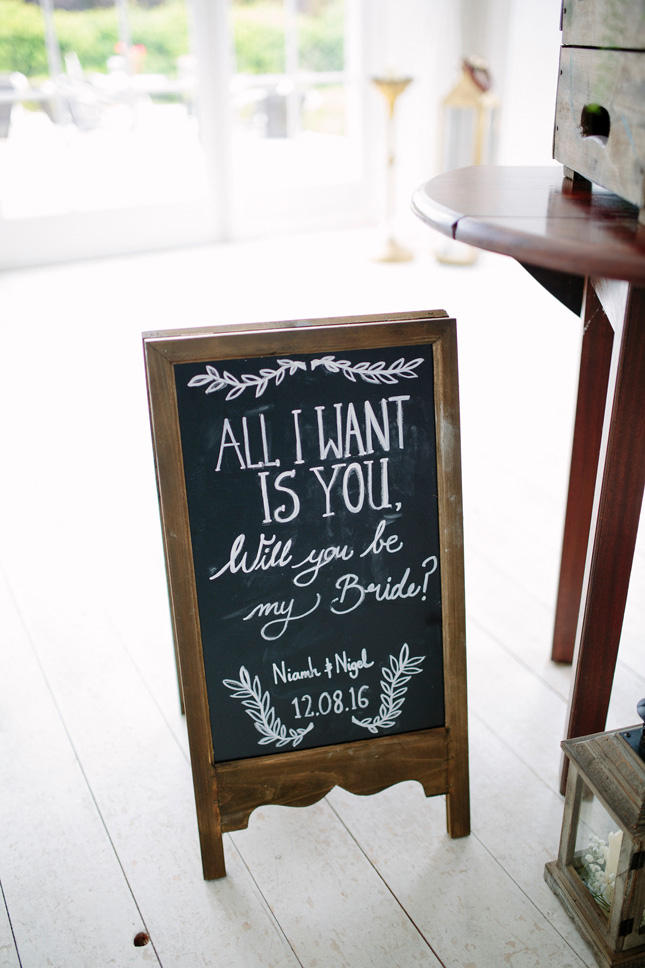 ALL I WANT
IS YOU,
Will you be
my Bride?
Niamh & Nigel
12.08.16